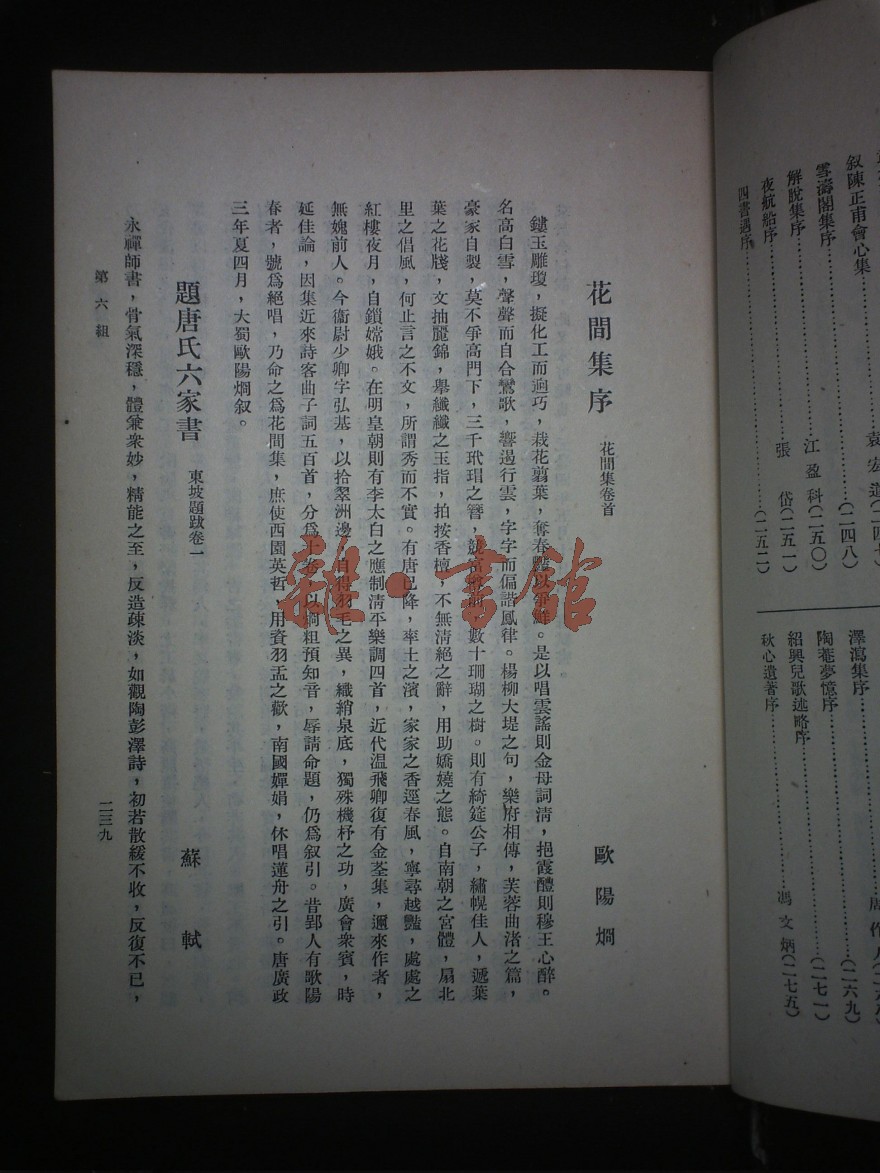 敍陳正甫會心集
袁宏道(二四七)
雪濤閣集序
(二四八)
解脫集序
江盈科(二五〇)
夜航船序
張岱(二五一)
四書遇序
(二五二)
澤瀉集序
(二六九)
陶菴夢憶序
(二七一)
紹興兒歌述略序
秋心遺著序
馮文炳(二七五)
花間集序 花間集卷首 歐陽烱
鏤玉雕瓊，擬化工而迥巧，栽花翦葉，奪春豔以爭鮮。是以唱雲謠則金母詞清，挹霞醴則穆王心醉。
名高白雪，聲聲而自合鸞歌，響遏行雲，字字而偏諧鳳律。楊柳大堤之句，樂府相傳，芙蓉曲渚之篇，
豪家自製，莫不爭高門下，三千玳瑁之簪，競富樽前，數十珊瑚之樹。則有綺筵公子，繡幌佳人，遞葉
葉之花牋，文抽麗錦，舉纖纖之玉指，拍按香檀，不無清絕之辭，用助嬌嬈之態。自南朝之宮體，扇北
里之倡風，何止言之不文，所謂秀而不實。有唐已降，率土之濱，家家之香逕春風，寧尋越豔，處處之
紅樓夜月，自鎖嫦娥。在明皇朝則有李太白之應制清平樂調四首，近代溫飛卿復有金荃集，邇來作者，
無媿前人。今衞尉少卿字弘基，以拾翠洲邊，自得羽毛之異，織綃泉底，獨殊機杼之功，廣會衆賓，時
延佳論，因集近來詩客曲子詞五百首，分爲十卷，以烱粗預知音，辱請命題，仍爲叙引。昔郢人有歌陽
春者，號爲絕唱，乃命之爲花間集，庶使西園英哲，用資羽盃之歡，南國嬋娟，休唱蓮舟之引。唐廣政
三年夏四月，大蜀歐陽烱叙。
題唐氏六家書 東坡題跋卷一 蘇軾
永禪師書，骨氣深穩，體兼衆妙，精能之至，反造疎淡，如觀陶彭澤詩，初若散緩不收，反復不已，
第六組 二三九
雜·書館